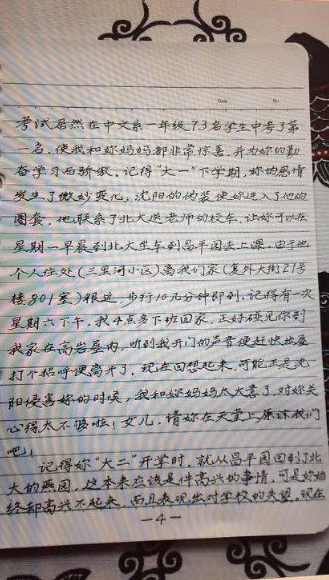 Date No.
考试居然在中文系一年级73名学生中考了第
一名，使我和妳妈妈都非常惊喜，并为妳的勤
奋学习而骄傲。记得“大一”下学期，妳的感情
发生了微妙变化，沈阳的伪装使妳进入了他的
圈套，他联系了北大送老师的校车，让妳可以在
星期一早晨到北大坐车到昌平园去上课。由于他
个人住处（三里河小区）离我们家（复外大街21号
楼801室）很近，步行10几分钟即到。记得有一次
星期六下午，我4点多下班回家，正好碰见你到
我家在高岩屋内，听到我开门的声音便赶快出屋
打个招呼便离开了，现在回想起来，可能正是沈
阳侵害妳的时候，我和妳妈妈太大意了，对妳关
心得太不够啦！女儿，请妳在天堂上原谅我们
吧！
记得妳“大二”开学时，就从昌平园回到北
大的燕园，这本来应该是件高兴的事情，可是妳始
终却高兴不起来，而且表现出对学校的失望。现在
—4—